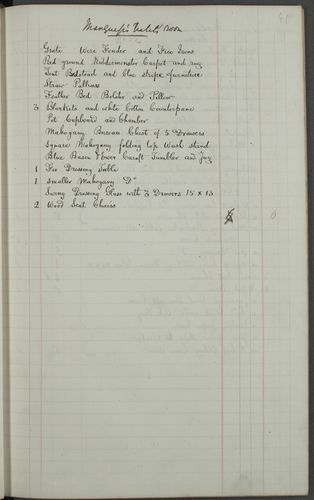 Marquess's Valets, room
Grate Wire Fender and Fire Irons
Red ground Kidderminster Carpet and rug
Tent Bedstead and blue stripe furniture
Straw Palliass
Feather Bed Bolster and Pillow
3 Blankets and white Cotton Counterpane
Pot Cupboard and Chamber
Mahogany Bureau Chest of 5 Drawers
Square Mahogany folding top Wash stand
Blue Basin Ewer Caraft Tumbler and Jug
1 Fir Dressing Table
1 Smaller Mahogany Do
Swing Dressing Glass with 3 Drawers 15 x 13
2 Wood Seat Chairs